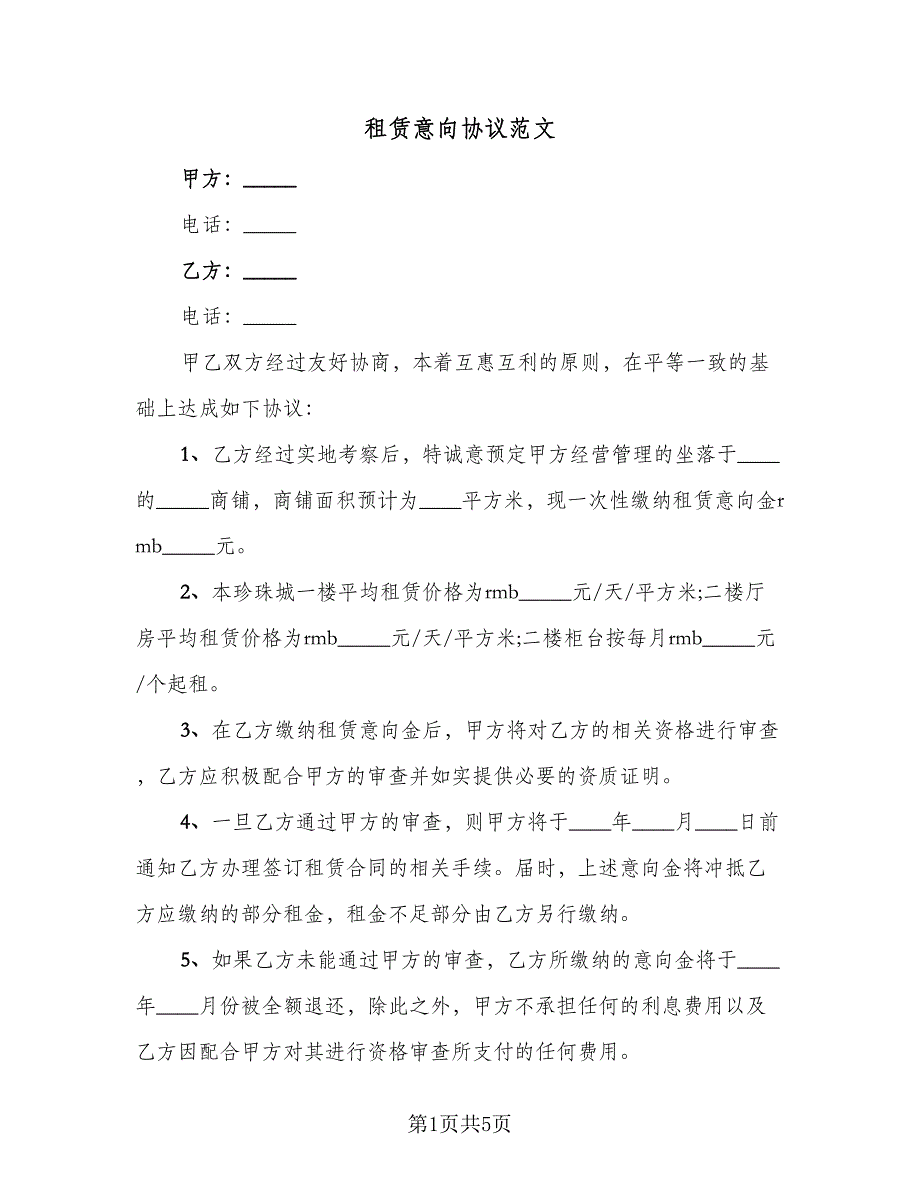 租赁意向协议范文
甲方：_____
电话：_____
乙方：_____
电话：_____
甲乙双方经过友好协商，本着互惠互利的原则，在平等一致的基
础上达成如下协议：
1、乙方经过实地考察后，特诚意预定甲方经营管理的坐落于____
的_____商铺，商铺面积预计为____平方米，现一次性缴纳租赁意向金r
mb_____元。
2、本珍珠城一楼平均租赁价格为rmb_____元/天/平方米;二楼厅
房平均租赁价格为rmb_____元/天/平方米;二楼柜台按每月rmb_____元
/个起租。
3、在乙方缴纳租赁意向金后，甲方将对乙方的相关资格进行审查
，乙方应积极配合甲方的审查并如实提供必要的资质证明。
4、一旦乙方通过甲方的审查，则甲方将于____年____月____日前
通知乙方办理签订租赁合同的相关手续。届时，上述意向金将冲抵乙
方应缴纳的部分租金，租金不足部分由乙方另行缴纳。
5、如果乙方未能通过甲方的审查，乙方所缴纳的意向金将于____
年____月份被全额退还，除此之外，甲方不承担任何的利息费用以及
乙方因配合甲方对其进行资格审查所支付的任何费用。
第1页共5页